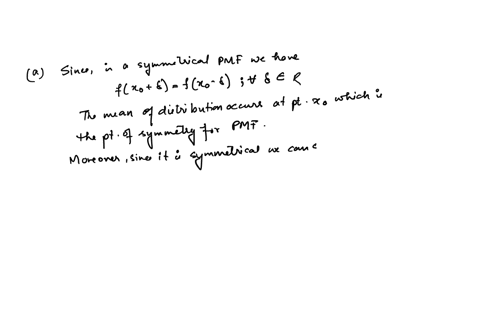 (a) Since, in a symmetrical PMF we have
f(x₀+δ) = f(x₀-δ) ; ∀ δ ∈ R
The mean of distribution occurs at pt. x₀ which is
the pt. of symmetry for PMF.
Moreover, since it is symmetrical we can